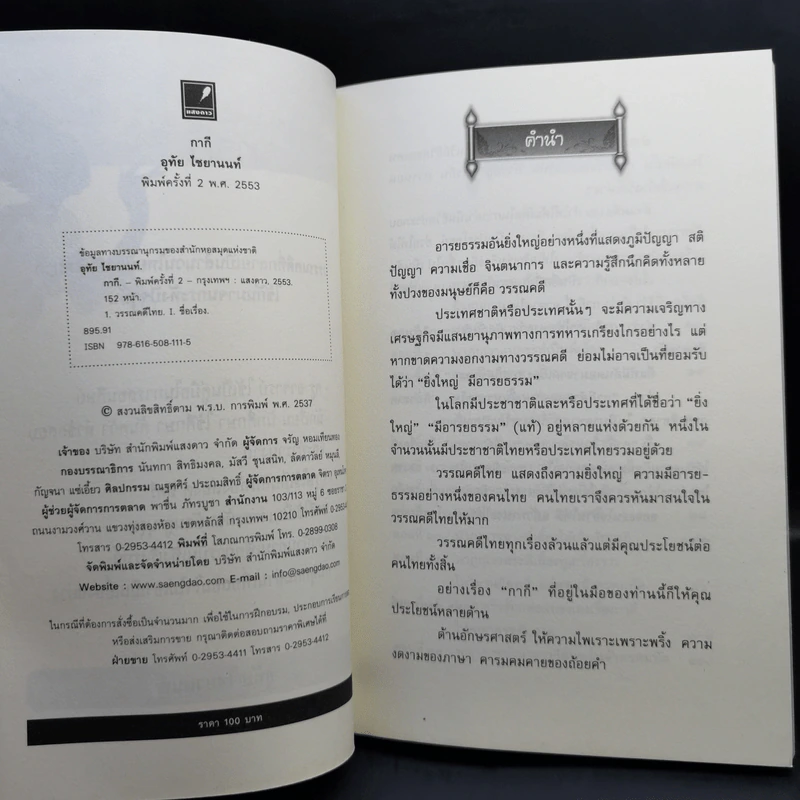 แสงดาว
กากี
อุทัย ไชยานนท์
พิมพ์ครั้งที่ 2 พ.ศ. 2553
ข้อมูลทางบรรณานุกรมของสำนักหอสมุดแห่งชาติ
อุทัย ไชยานนท์.
กากี. – พิมพ์ครั้งที่ 2 – กรุงเทพฯ : แสงดาว, 2553.
152 หน้า.
1. วรรณคดีไทย. I. ชื่อเรื่อง.
895.91
ISBN 978-616-508-111-5
© สงวนลิขสิทธิ์ตาม พ.ร.บ. การพิมพ์ พ.ศ. 2537
เจ้าของ บริษัท สำนักพิมพ์แสงดาว จำกัด ผู้จัดการ จรัญ หอมเทียนทอง
กองบรรณาธิการ นันทกา สิทธิมงคล, มัสวี ชุนสนิท, ลัดดาวัลย์ หมุนลี
กัญจนา แซ่เอี้ยว ศิลปกรรม ณฐศศิร์ ประถมสิทธิ์ ผู้จัดการการตลาด จิตรา
ผู้ช่วยผู้จัดการการตลาด พาชื่น ภัทรบูชา สำนักงาน 103/113 หมู่ 6
ถนนงามวงศ์วาน แขวงทุ่งสองห้อง เขตหลักสี่ กรุงเทพฯ 10210 โทรศัพท์ 0-2953-
โทรสาร 0-2953-4412 พิมพ์ที่ โสภณการพิมพ์ โทร. 0-2899-0308
จัดพิมพ์และจัดจำหน่ายโดย บริษัท สำนักพิมพ์แสงดาว จำกัด
Website : www.saengdao.com E-mail : info@saengdao.com
ในกรณีที่ต้องการสั่งซื้อเป็นจำนวนมาก เพื่อใช้ในการฝึกอบรม, ประกอบการเรียน
หรือส่งเสริมการขาย กรุณาติดต่อสอบถามราคาพิเศษได้ที่
ฝ่ายขาย โทรศัพท์ 0-2953-4411 โทรสาร 0-2953-4412
ราคา 100 บาท
คำนำ
อารยธรรมอันยิ่งใหญ่อย่างหนึ่งที่แสดงภูมิปัญญา สติ
ปัญญา ความเชื่อ จินตนาการ และความรู้สึกนึกคิดทั้งหลาย
ทั้งปวงของมนุษย์ก็คือ วรรณคดี
ประเทศชาติหรือประเทศนั้นๆ จะมีความเจริญทาง
เศรษฐกิจมีแสนยานุภาพทางการทหารเกรียงไกรอย่างไร แต่
หากขาดความงอกงามทางวรรณคดี ย่อมไม่อาจเป็นที่ยอมรับ
ได้ว่า “ยิ่งใหญ่ มีอารยธรรม”
ในโลกมีประชาชาติและหรือประเทศที่ได้ชื่อว่า “ยิ่ง
ใหญ่” “มีอารยธรรม” (แท้) อยู่หลายแห่งด้วยกัน หนึ่งใน
จำนวนนั้นมีประชาชาติไทยหรือประเทศไทยรวมอยู่ด้วย
วรรณคดีไทย แสดงถึงความยิ่งใหญ่ ความมีอารย-
ธรรมอย่างหนึ่งของคนไทย คนไทยเราจึงควรหันมาสนใจใน
วรรณคดีไทยให้มาก
วรรณคดีไทยทุกเรื่องล้วนแล้วแต่มีคุณประโยชน์ต่อ
คนไทยทั้งสิ้น
อย่างเรื่อง “กากี” ที่อยู่ในมือของท่านนี้ก็ให้คุณ
ประโยชน์หลายด้าน
ด้านอักษรศาสตร์ ให้ความไพเราะเพราะพริ้ง ความ
งดงามของภาษา คารมคมคายของถ้อยคำ